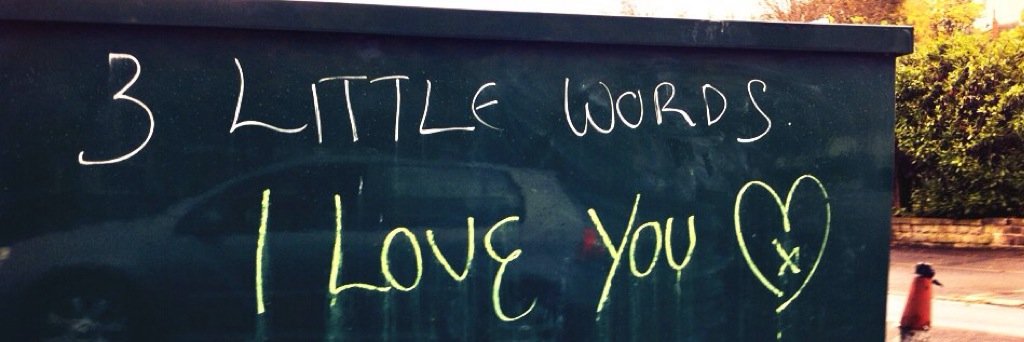 3 LITTLE WORDS.
I LOVE YOU x